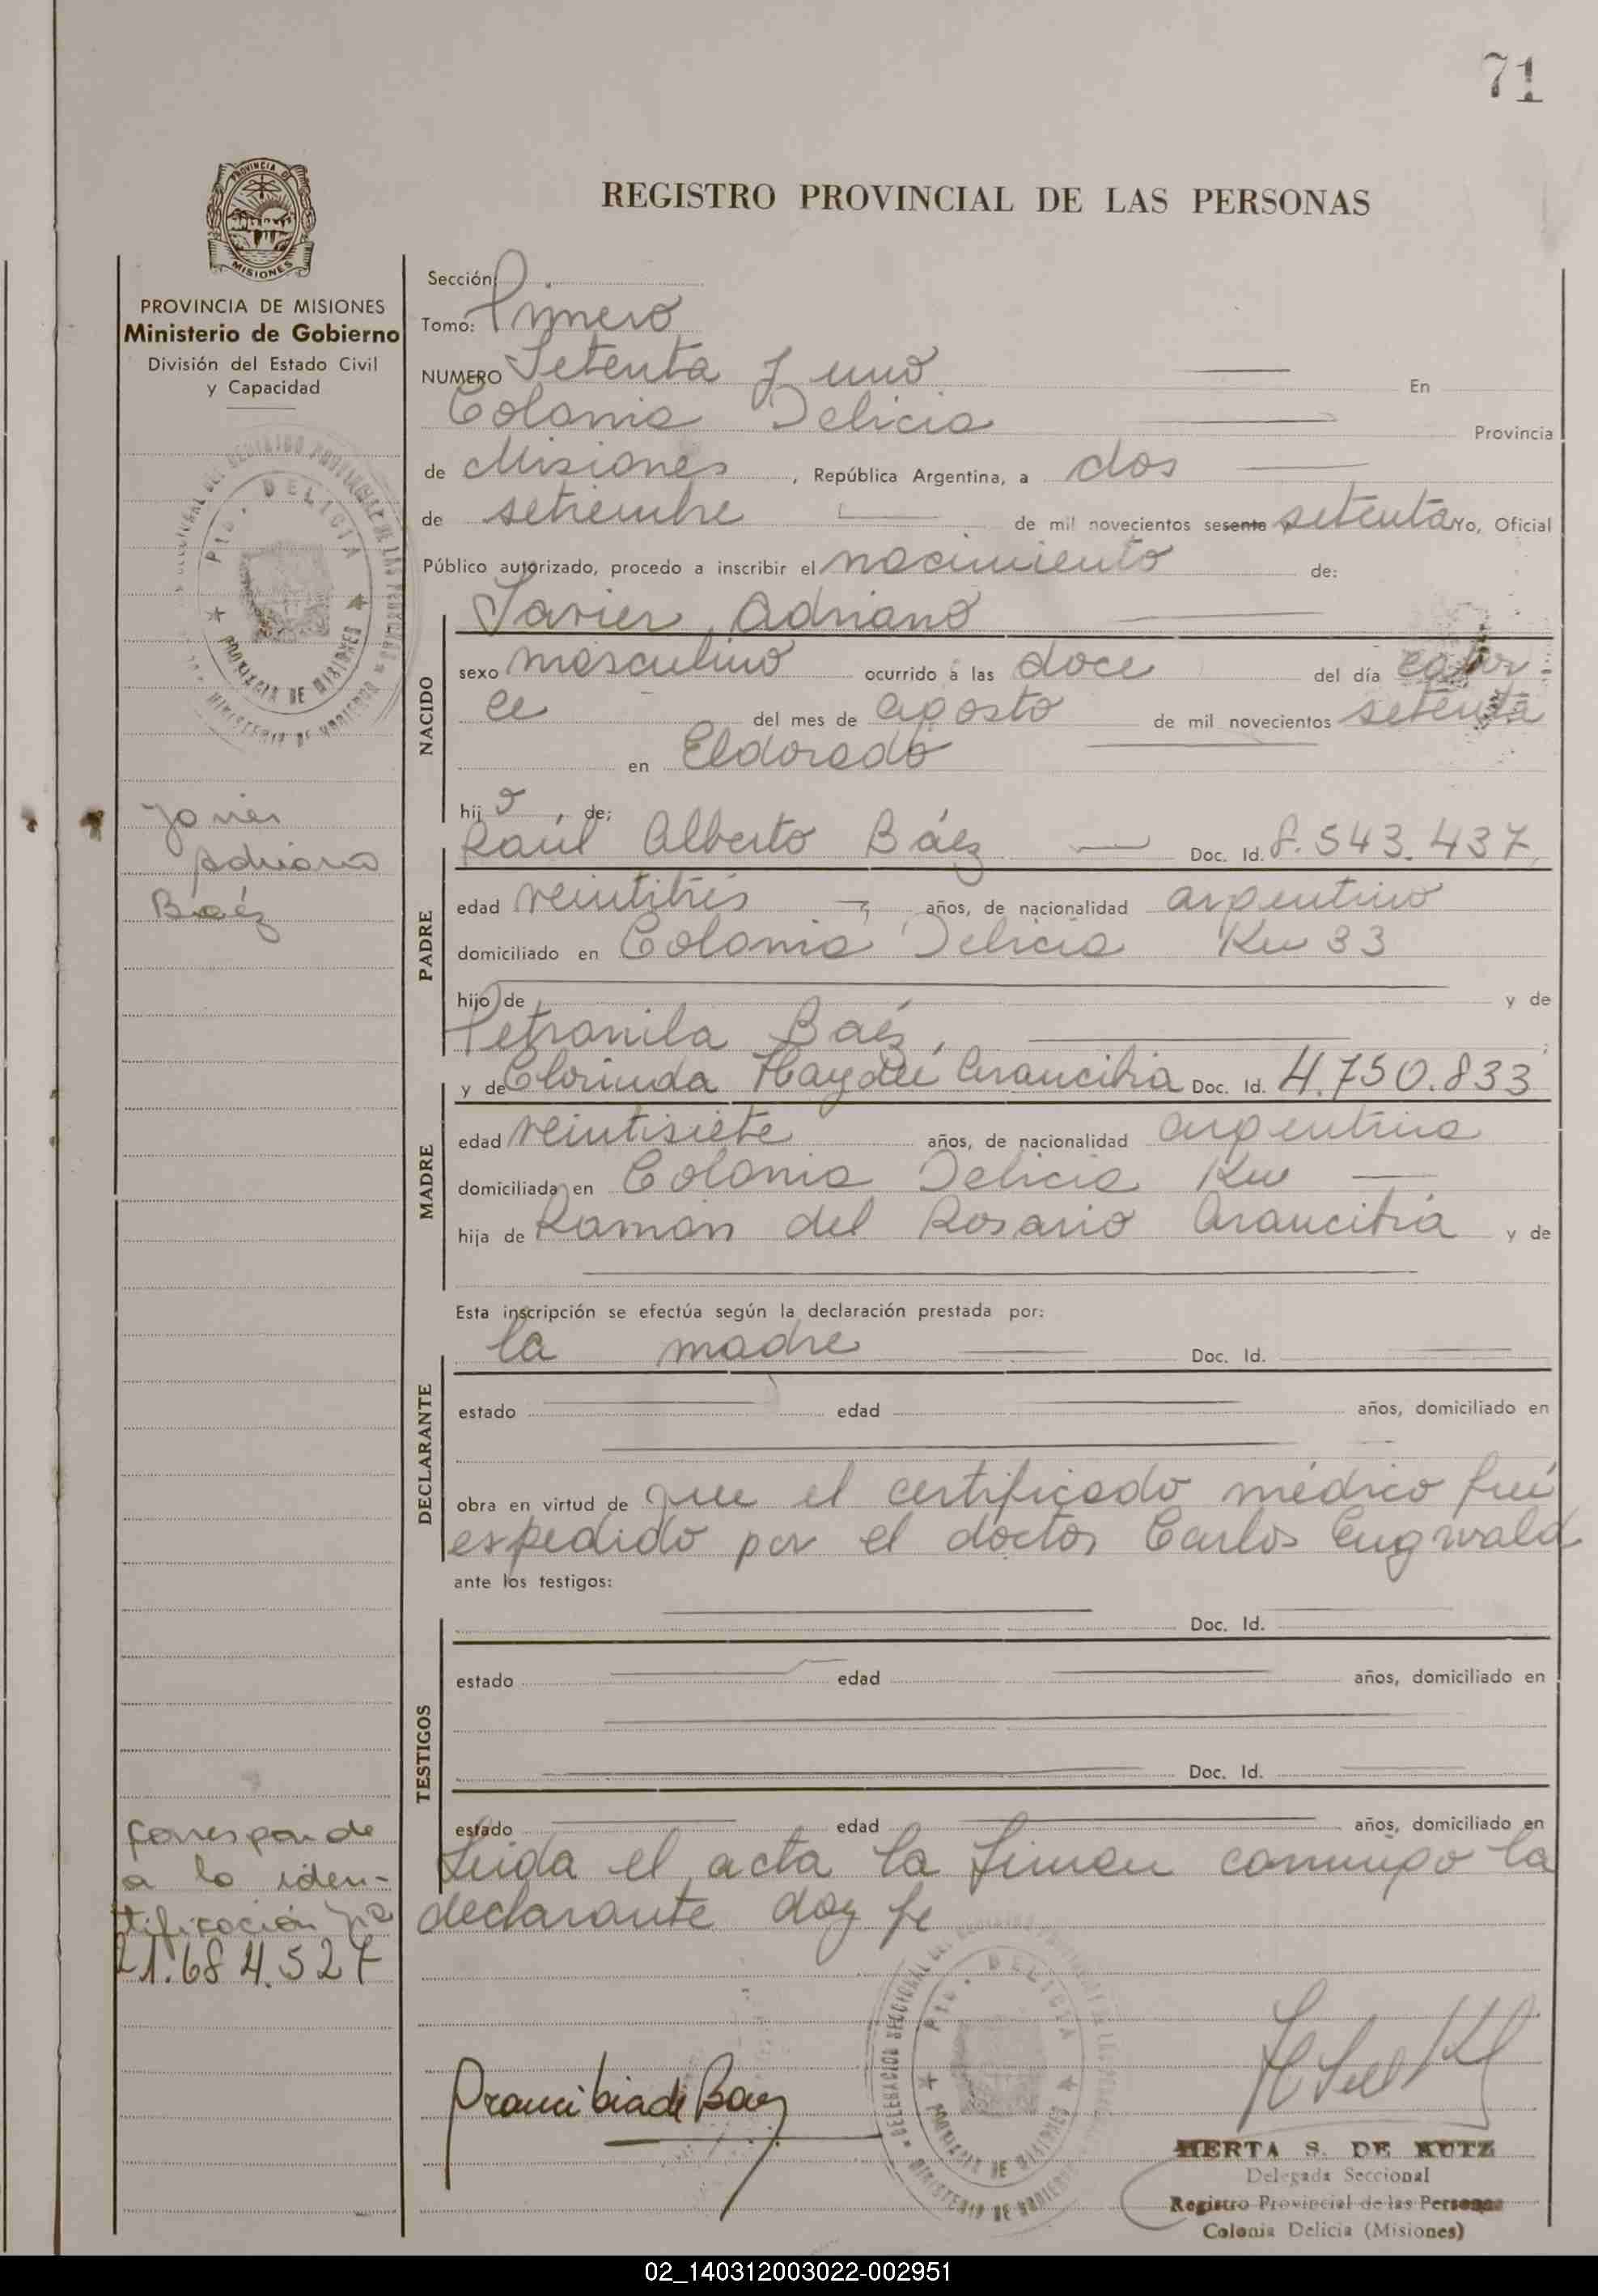 71
REGISTRO PROVINCIAL DE LAS PERSONAS
PROVINCIA DE
MISIONES
PROVINCIA DE MISIONES
Ministerio de Gobierno
División del Estado Civil
y Capacidad
Pto. DELICIA
PROVINCIA DE MISIONES
MINISTERIO DE GOBIERNO
Javier
Adriano
Baéz
Corresponde
a la iden-
tificación
21.684.527
Sección
Tomo: Primero
NUMERO Setenta y uno En
Colonia Delicia Provincia
de Misiones, República Argentina, a dos
de setiembre de mil novecientos sesenta setenta Yo, Oficial
Público autorizado, procedo a inscribir el nacimiento de:
Javier Adriano
NACIDO
sexo masculino ocurrido á las doce del día cator
ce del mes de agosto de mil novecientos setenta
en Eldorado
hijo, de;
PADRE
Raúl Alberto Báez Doc. Id. 8.543.437
edad veintitrés años, de nacionalidad argentino
domiciliado en Colonia Delicia Km 33
hijo de y de
Petronila Baéz,
MADRE
y de Clorinda Haydeé Arancibia Doc. Id. 4.750.833
edad veintisiete años, de nacionalidad argentina
domiciliada en Colonia Delicia Km
hija de Ramón del Rosario Arancibia y de
Esta inscripción se efectúa según la declaración prestada por:
DECLARANTE
la madre Doc. Id.
estado edad años, domiciliado en
obra en virtud de que el certificado médico fué
espedido por el doctor Carlos
ante los testigos:
TESTIGOS
Doc. Id.
estado edad años, domiciliado en
Doc. Id.
estado edad años, domiciliado en
Leida el acta la firman conmigo la
declarante doy fe
Arancibia de Baez
DELEGACION SECCIONAL
Pto. DELICIA
PROVINCIA DE MISIONES
MINISTERIO DE GOBIERNO
HERTA S. DE KUTZ
Delegada Seccional
Registro Provincial de las Personas
Colonia Delicia (Misiones)
02_140312003022-002951